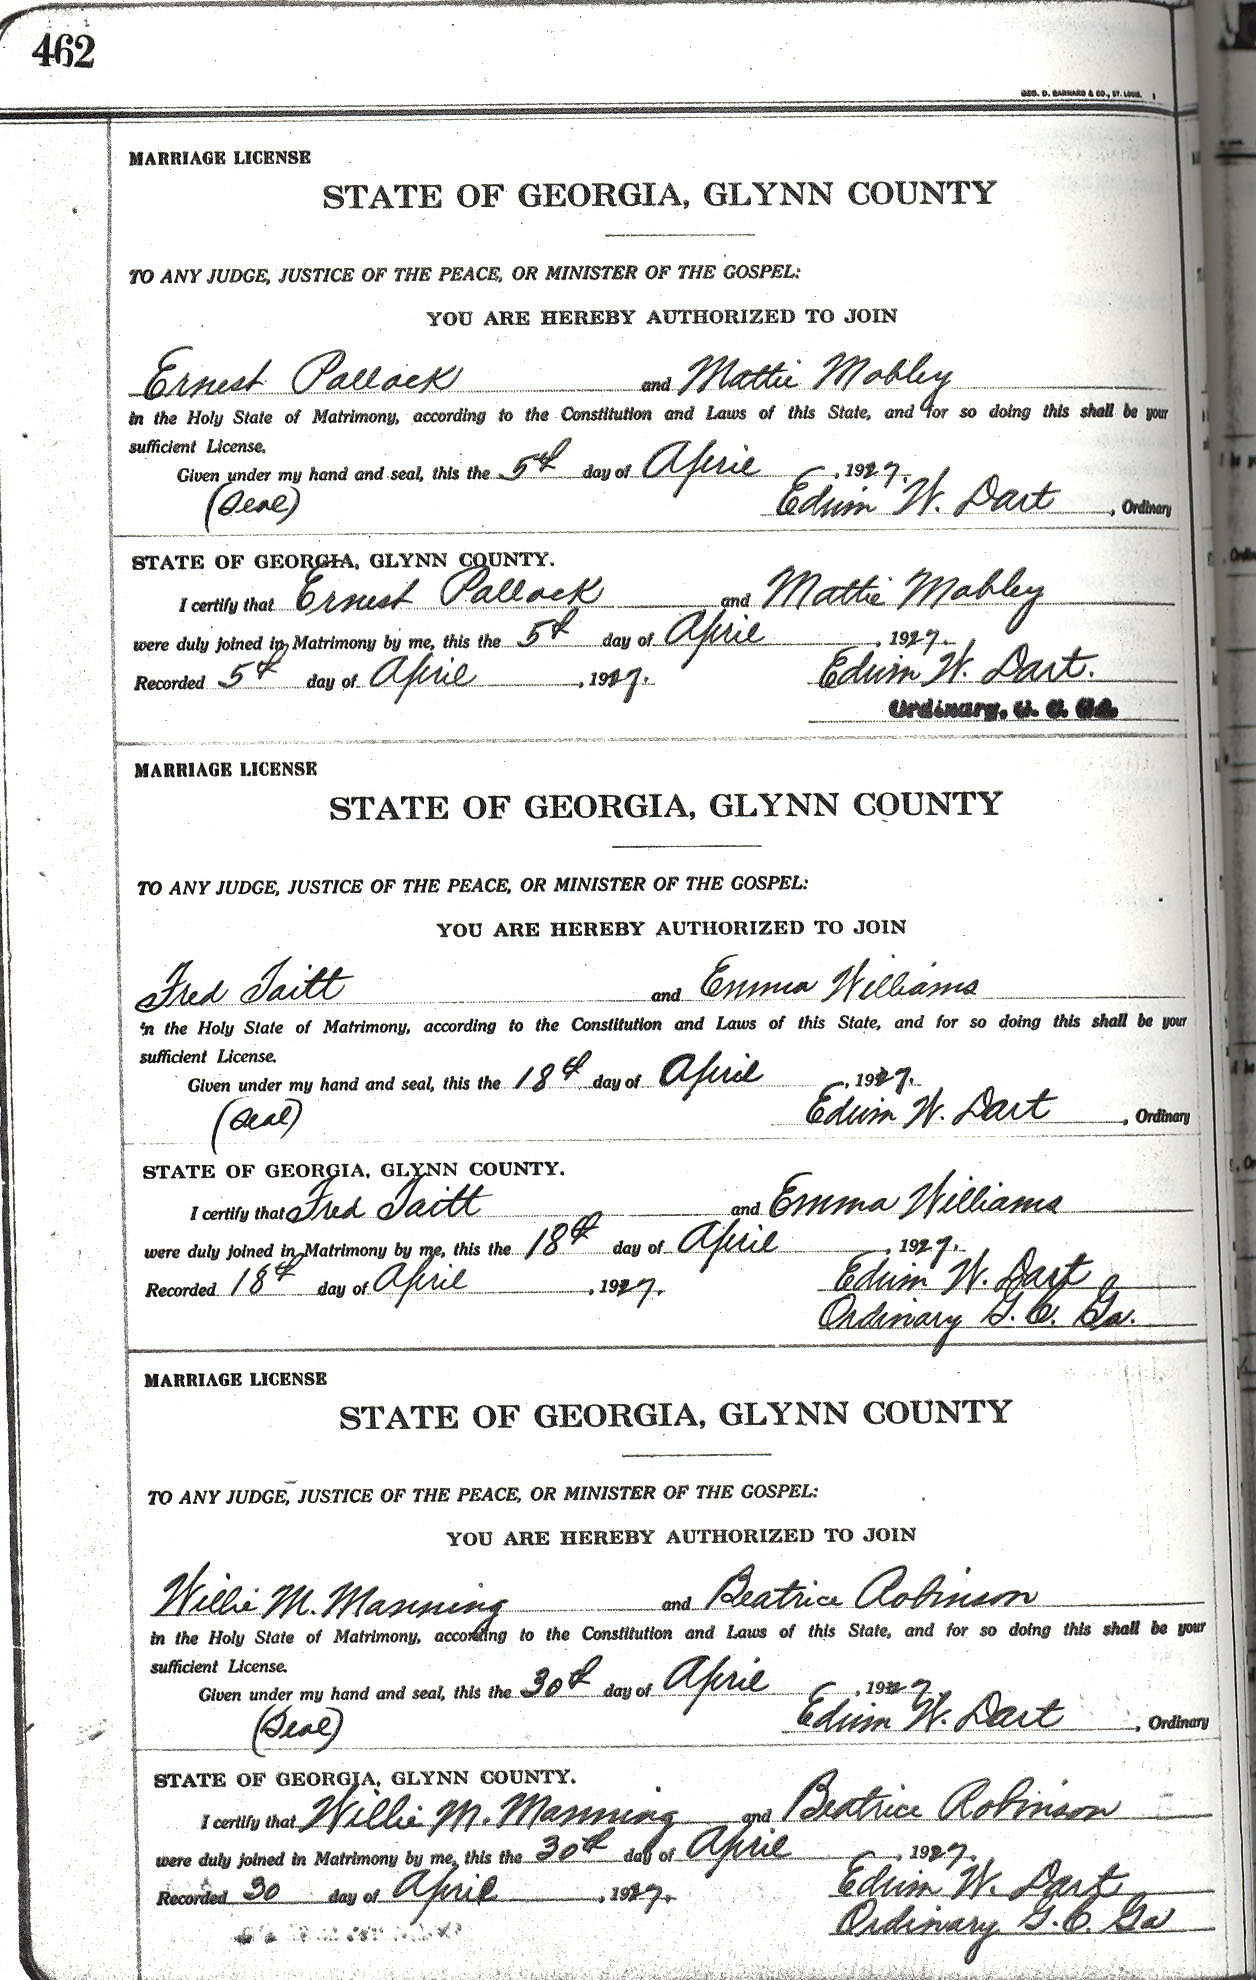 462
GEO. D. BARNARD & CO., ST. LOUIS.
MARRIAGE LICENSE
STATE OF GEORGIA, GLYNN COUNTY
TO ANY JUDGE, JUSTICE OF THE PEACE, OR MINISTER OF THE GOSPEL:
YOU ARE HEREBY AUTHORIZED TO JOIN
Ernest Pallock and Mattie Mobley
in the Holy State of Matrimony, according to the Constitution and Laws of this State, and for so doing this shall be your
sufficient License.
Given under my hand and seal, this the 5th day of April, 1927.
(Seal) Edwin W. Dart, Ordinary
STATE OF GEORGIA, GLYNN COUNTY.
I certify that Ernest Pallock and Mattie Mobley
were duly joined in Matrimony by me, this the 5th day of April, 1927.
Recorded 5th day of April, 1927. Edwin W. Dart.
Ordinary, G. C. Ga.
MARRIAGE LICENSE
STATE OF GEORGIA, GLYNN COUNTY
TO ANY JUDGE, JUSTICE OF THE PEACE, OR MINISTER OF THE GOSPEL:
YOU ARE HEREBY AUTHORIZED TO JOIN
Fred Taitt and Emma Williams
in the Holy State of Matrimony, according to the Constitution and Laws of this State, and for so doing this shall be your
sufficient License.
Given under my hand and seal, this the 18th day of April, 1927.
(Seal) Edwin W. Dart, Ordinary
STATE OF GEORGIA, GLYNN COUNTY.
I certify that Fred Taitt and Emma Williams
were duly joined in Matrimony by me, this the 18th day of April, 1927.
Recorded 18th day of April, 1927. Edwin W. Dart
Ordinary G. C. Ga.
MARRIAGE LICENSE
STATE OF GEORGIA, GLYNN COUNTY
TO ANY JUDGE, JUSTICE OF THE PEACE, OR MINISTER OF THE GOSPEL:
YOU ARE HEREBY AUTHORIZED TO JOIN
Willie M. Manning and Beatrice Robinson
in the Holy State of Matrimony, according to the Constitution and Laws of this State, and for so doing this shall be your
sufficient License.
Given under my hand and seal, this the 30th day of April, 1927.
(Seal) Edwin W. Dart, Ordinary
STATE OF GEORGIA, GLYNN COUNTY.
I certify that Willie M. Manning and Beatrice Robinson
were duly joined in Matrimony by me, this the 30th day of April, 1927.
Recorded 30 day of April, 1927. Edwin W. Dart
Ordinary G. C. Ga